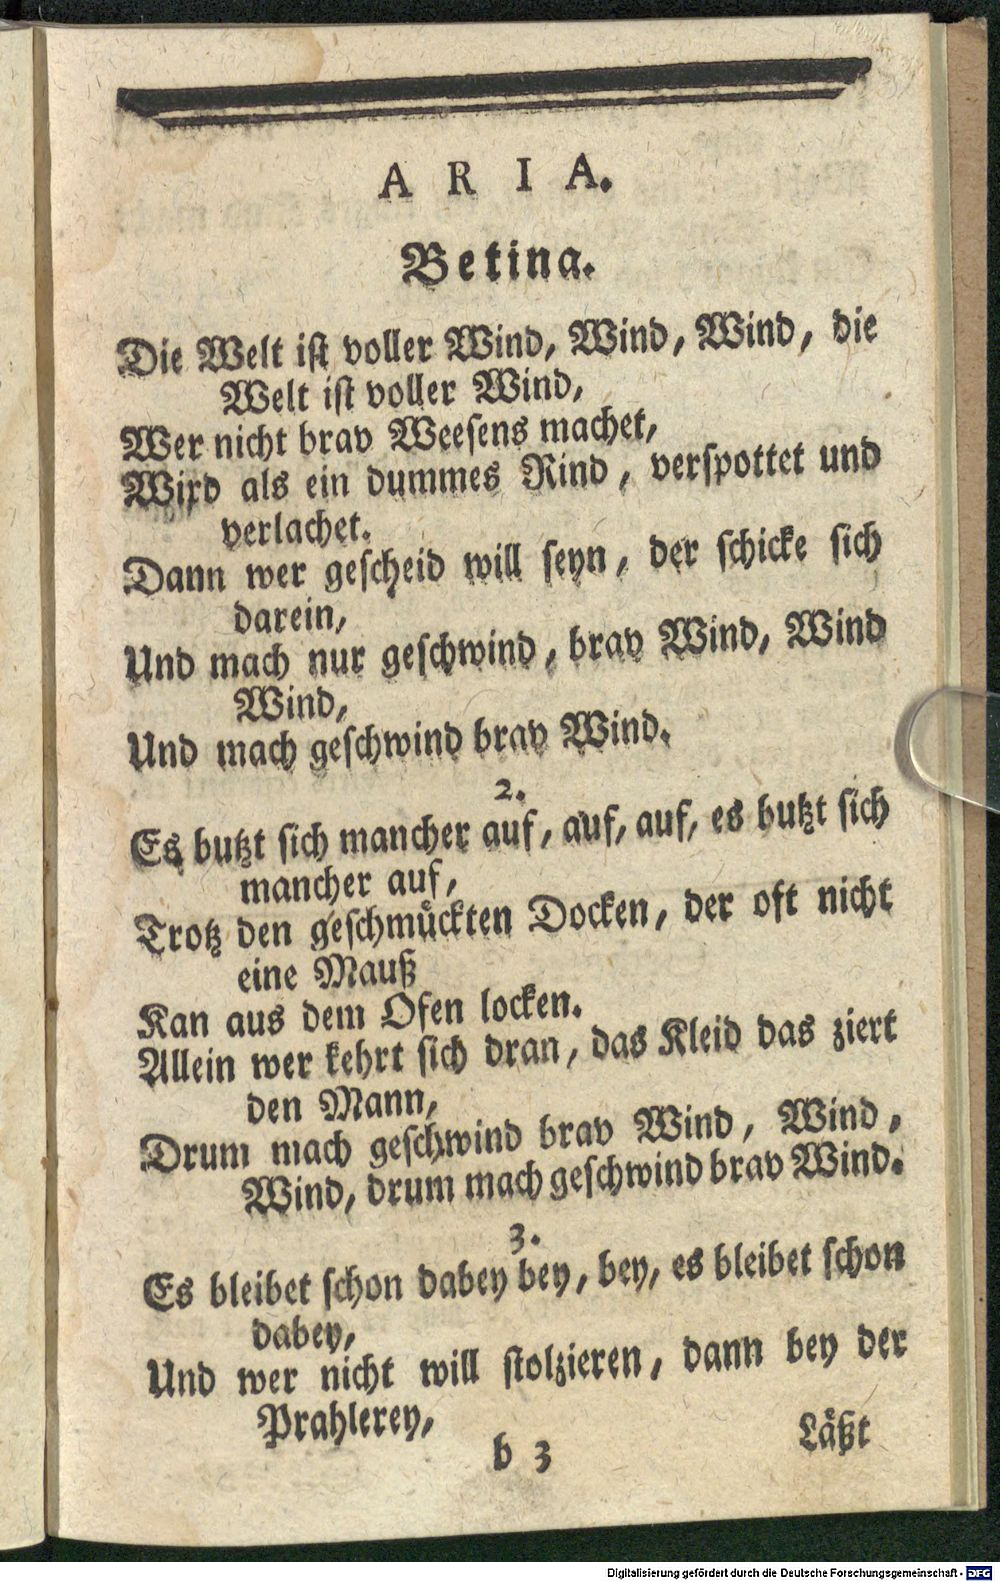 ARIA.
Betina.
Die Welt ist voller Wind, Wind, Wind, die
Welt ist voller Wind,
Wer nicht brav Weesens machet,
Wird als ein dummes Rind, verspottet und
verlachet.
Dann wer gescheid will seyn, der schicke sich
darein,
Und mach nur geschwind, brav Wind, Wind
Wind,
Und mach geschwind brav Wind.
2.
Es butzt sich mancher auf, auf, auf, es butzt sich
mancher auf,
Trotz den geschmückten Docken, der oft nicht
eine Mauß
Kan aus dem Ofen locken.
Allein wer kehrt sich dran, das Kleid das ziert
den Mann,
Drum mach geschwind brav Wind, Wind,
Wind, drum mach geschwind brav Wind.
3.
Es bleibet schon dabey bey, bey, es bleibet schon
dabey,
Und wer nicht will stolzieren, dann bey der
Prahlerey,
b 3
Läßt
Digitalisierung gefördert durch die Deutsche Forschungsgemeinschaft - DFG